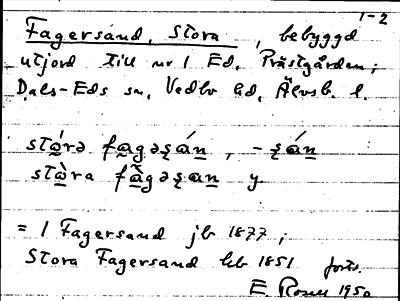 1-2
Fagersand, Stora, bebyggd
utjord till nr 1 Ed, Prästgården;
Dals-Eds sn, Vedbo hd, Älvsb. l.
stǻrə fagəʂán, -ʂán
stàra fàgəʂan y
= 1 Fagersand jb 1877;
Stora Fagersand hfl 1851 forts.
E. Rosell 1950